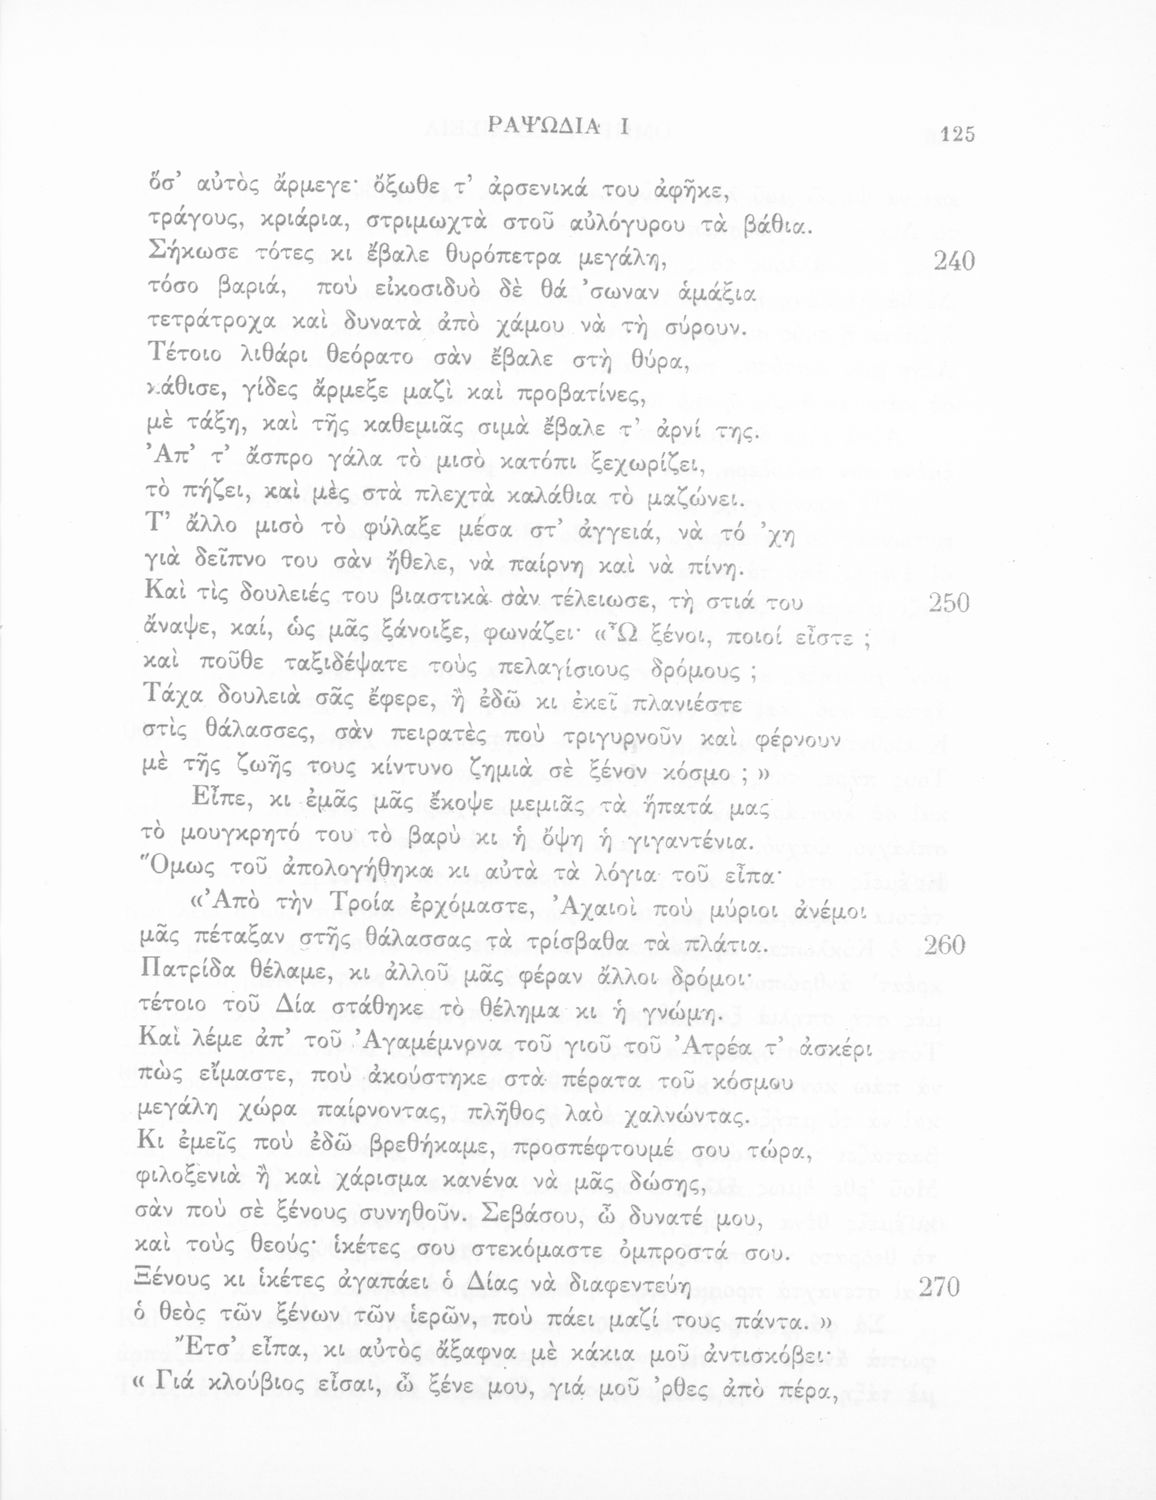 ΡΑΨΩΔΙΑ Ι
125
ὅσ' αὐτὸς ἄρμεγε· ὄξωθε τ' ἀρσενικά του ἀφῆκε,
τράγους, κριάρια, στριμωχτὰ στοῦ αὐλόγυρου τὰ βάθια.
Σήκωσε τότες κι ἔβαλε θυρόπετρα μεγάλη,
240
τόσο βαριά, ποὺ εἰκοσιδυὸ δὲ θά 'σωναν ἁμάξια
τετράτροχα καὶ δυνατὰ ἀπὸ χάμου νὰ τὴ σύρουν.
Τέτοιο λιθάρι θεόρατο σὰν ἔβαλε στὴ θύρα,
κάθισε, γίδες ἄρμεξε μαζὶ καὶ προβατίνες,
μὲ τάξη, καὶ τῆς καθεμιᾶς σιμὰ ἔβαλε τ' ἀρνί της.
Ἀπ' τ' ἄσπρο γάλα τὸ μισὸ κατόπι ξεχωρίζει,
τὸ πήζει, καὶ μὲς στὰ πλεχτὰ καλάθια τὸ μαζώνει.
Τ' ἄλλο μισὸ τὸ φύλαξε μέσα στ' ἀγγειά, νὰ τό 'χη
γιὰ δεῖπνο του σὰν ἤθελε, νὰ παίρνη καὶ νὰ πίνη.
Καὶ τὶς δουλειές του βιαστικὰ σὰν τέλειωσε, τὴ στιά του
250
ἄναψε, καί, ὡς μᾶς ξάνοιξε, φωνάζει· «Ὦ ξένοι, ποιοί εἶστε ;
καὶ ποῦθε ταξιδέψατε τοὺς πελαγίσιους δρόμους ;
Τάχα δουλειὰ σᾶς ἔφερε, ἢ ἐδῶ κι ἐκεῖ πλανιέστε
στὶς θάλασσες, σὰν πειρατὲς ποὺ τριγυρνοῦν καὶ φέρνουν
μὲ τῆς ζωῆς τους κίντυνο ζημιὰ σὲ ξένον κόσμο ; »
Εἶπε, κι ἐμᾶς μᾶς ἔκοψε μεμιᾶς τὰ ἥπατά μας
τὸ μουγκρητό του τὸ βαρὺ κι ἡ ὄψη ἡ γιγαντένια.
Ὅμως τοῦ ἀπολογήθηκα κι αὐτὰ τὰ λόγια τοῦ εἶπα·
«Ἀπὸ τὴν Τροία ἐρχόμαστε, Ἀχαιοὶ ποὺ μύριοι ἀνέμοι
μᾶς πέταξαν στῆς θάλασσας τὰ τρίσβαθα τὰ πλάτια.
260
Πατρίδα θέλαμε, κι ἀλλοῦ μᾶς φέραν ἄλλοι δρόμοι·
τέτοιο τοῦ Δία στάθηκε τὸ θέλημα κι ἡ γνώμη.
Καὶ λέμε ἀπ' τοῦ Ἀγαμέμνονα τοῦ γιοῦ τοῦ Ἀτρέα τ' ἀσκέρι
πὼς εἴμαστε, ποὺ ἀκούστηκε στὰ πέρατα τοῦ κόσμου
μεγάλη χώρα παίρνοντας, πλῆθος λαὸ χαλνώντας.
Κι ἐμεῖς ποὺ ἐδῶ βρεθήκαμε, προσπέφτουμέ σου τώρα,
φιλοξενιὰ ἢ καὶ χάρισμα κανένα νὰ μᾶς δώσης,
σὰν ποὺ σὲ ξένους συνηθοῦν. Σεβάσου, ὦ δυνατέ μου,
καὶ τοὺς θεούς· ἱκέτες σου στεκόμαστε ὀμπροστά σου.
Ξένους κι ἱκέτες ἀγαπάει ὁ Δίας νὰ διαφεντεύη
270
ὁ θεὸς τῶν ξένων τῶν ἱερῶν, ποὺ πάει μαζί τους πάντα. »
Ἔτσ' εἶπα, κι αὐτὸς ἄξαφνα μὲ κάκια μοῦ ἀντισκόβει·
« Γιά κλούβιος εἶσαι, ὦ ξένε μου, γιά μοῦ 'ρθες ἀπὸ πέρα,